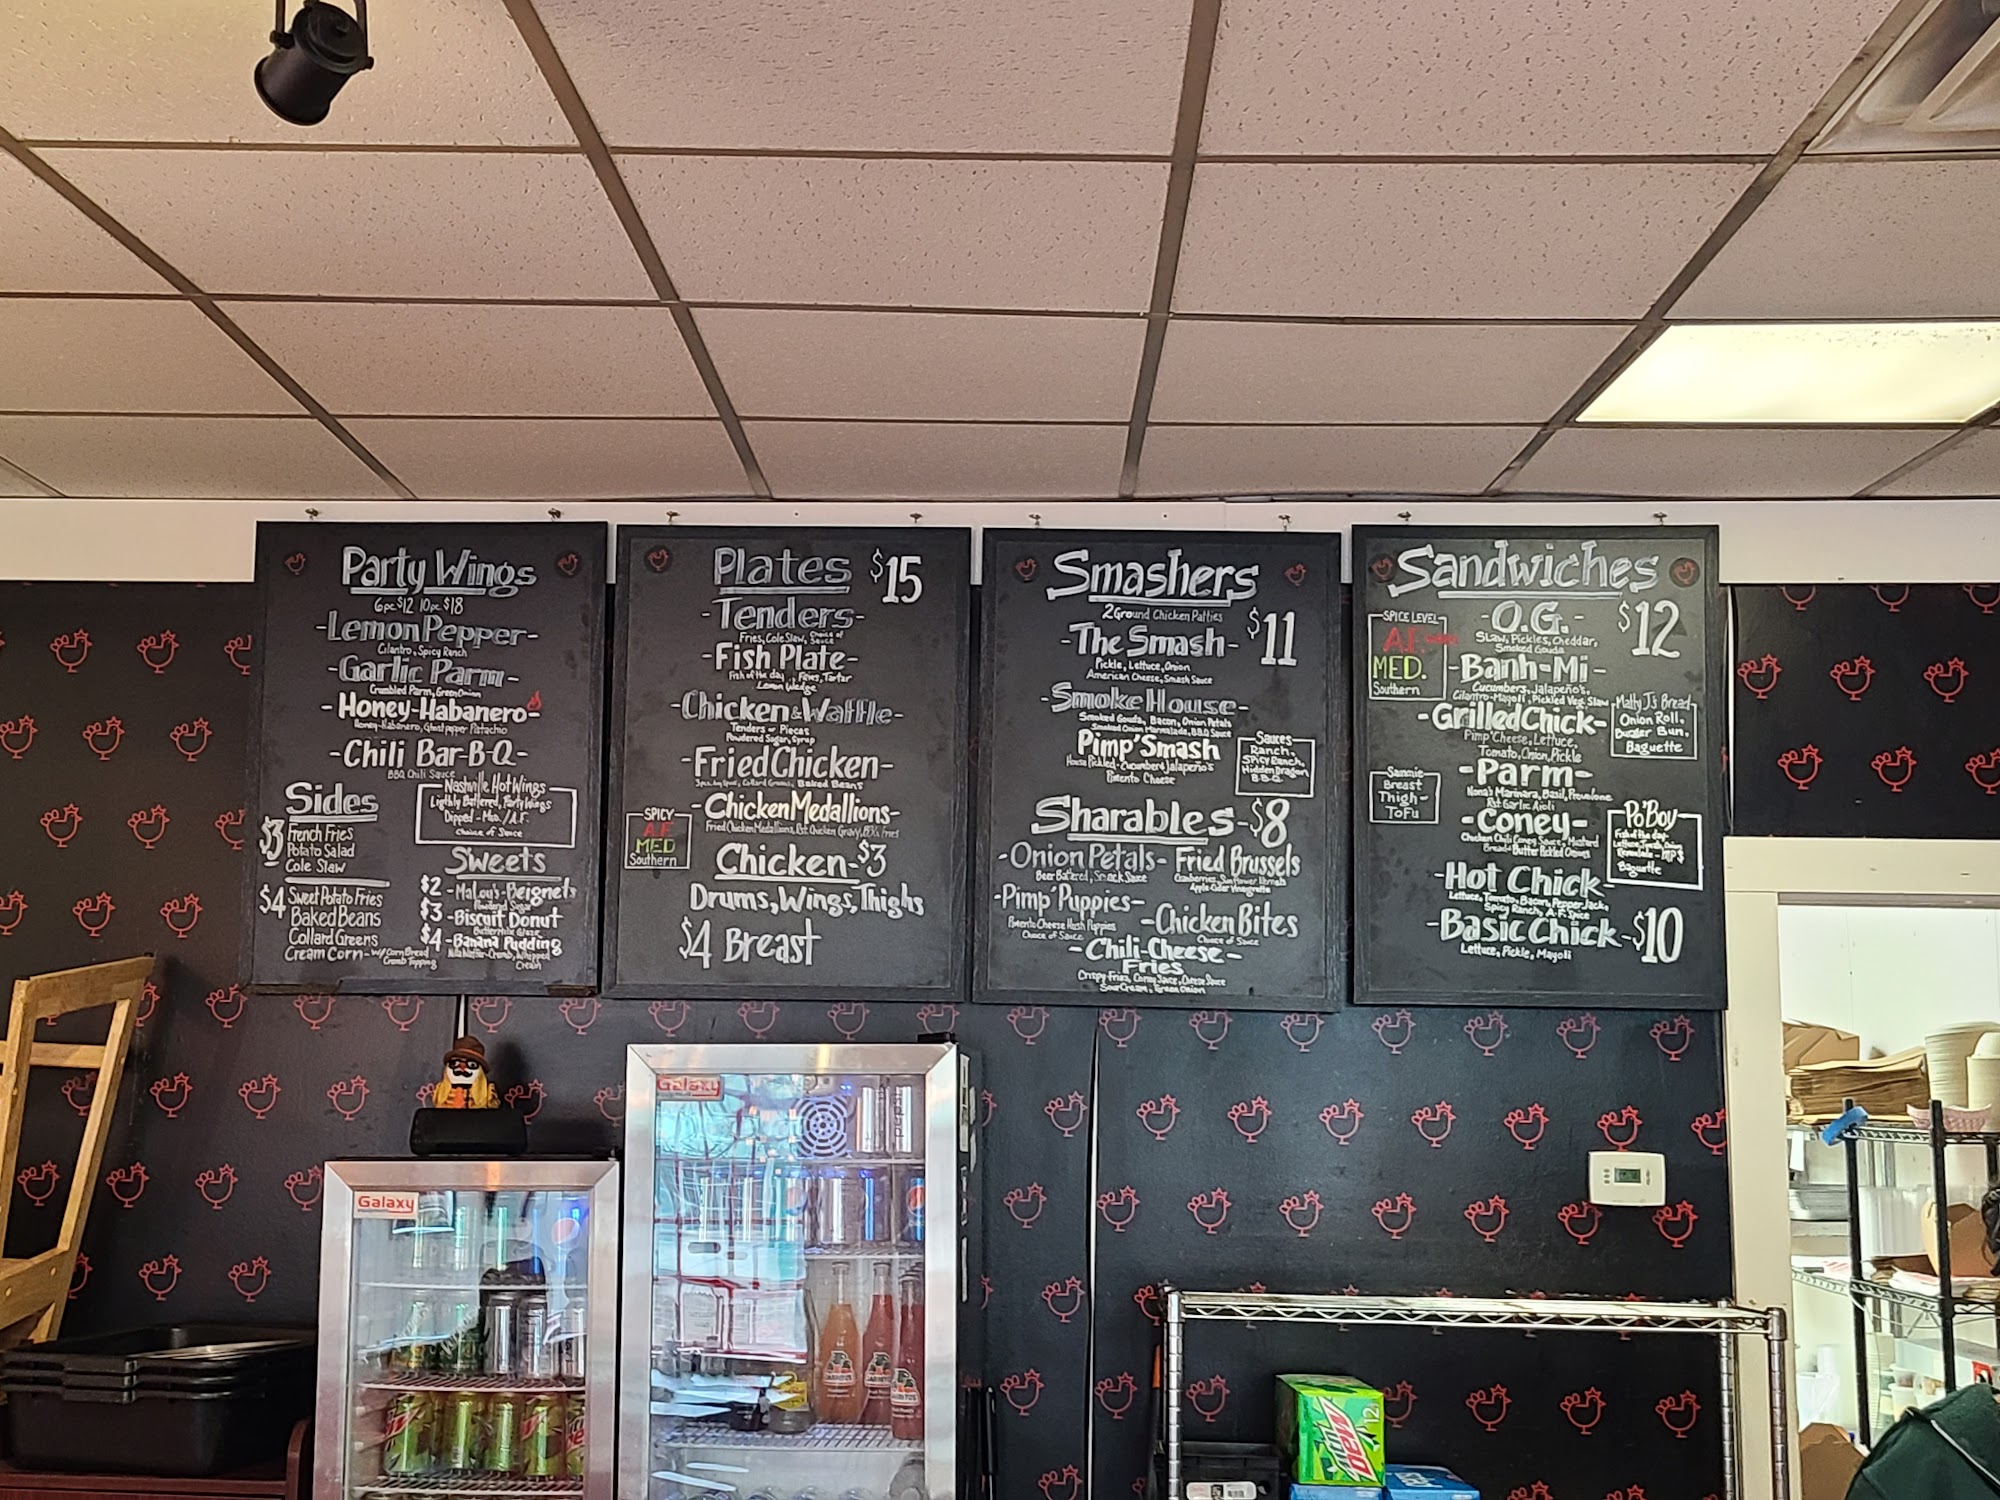 Party Wings
6pc $12 10pc $18
-Lemon Pepper-
Cilantro, Spicy Ranch
-Garlic Parm-
Crumbled Parm, Green Onion
-Honey-Habanero-
Honey-Habanero, Ghost pepper Pistachio
-Chili Bar-B-Q-
BBQ Chili Sauce
Sides
$3
French Fries
Potato Salad
Cole Slaw
$4
Sweet Potato Fries
Baked Beans
Collard Greens
Cream Corn - w/ Corn Bread
Crumb Topping
Nashville Hot Wings
Lightly Battered, Party Wings
Dipped - Med. / A.F.
Choice of Sauce
Sweets
$2 - MaLou's - Beignets
Powdered Sugar
$3 - Biscuit Donut
Buttermilk Glaze
$4 - Banana Pudding
Nilla Wafer-Crumb, Whipped
Cream
Plates $15
-Tenders-
Fries, Cole Slaw, Choice of
Sauce
-Fish Plate-
Fish of the day, Fries, Tartar
Lemon Wedge
-Chicken & Waffle-
Tenders or Pieces
Powdered Sugar, Syrup
-Fried Chicken-
Collard Greens, Baked Beans
-Chicken Medallions-
Fried Chicken Medallions, Rst Chicken Gravy, Fries
SPICY
A.F.
MED
Southern
Chicken-$3
Drums, Wings, Thighs
$4 Breast
Smashers
2 Ground Chicken Patties
$11
-The Smash-
Pickle, Lettuce, Onion
American Cheese, Smash Sauce
-Smoke House-
Smoked Gouda, Bacon, Onion Petals
Smoked Onion Marmalade, BBQ Sauce
Pimp' Smash
House Pickled-Cucumber & Jalapeño's
Pimento Cheese
Sauces
Ranch,
Spicy Ranch,
Hidden Dragon
B.B.Q.
Sharables-$8
-Onion Petals-
Beer Battered, Smack Sauce
Fried Brussels
Cranberries, Sunflower Kernels
Apple Cider Vinaigrette
-Pimp' Puppies-
Pimento Cheese Hush Puppies
Choice of Sauce
-Chicken Bites
Choice of Sauce
-Chili-Cheese-
Fries
Crispy Fries, Coney Sauce, Cheese Sauce
Sour Cream, Green Onion
Sandwiches
$12
-O.G.-
Slaw, Pickles, Cheddar,
Smoked Gouda
SPICE LEVEL
A.F.
MED.
Southern
-Banh-Mi-
Cucumbers, Jalapeño's,
Cilantro-Mayoli, Pickled Veg. Slaw
-Grilled Chick-
Pimp' Cheese, Lettuce,
Tomato, Onion, Pickle
Matty J's Bread
Onion Roll,
Burger Bun,
Baguette
-Parm-
Nona's Marinara, Basil, Provolone
Rst Garlic Aioli
Sammie
Breast
Thigh-
ToFu
-Coney-
Chicken Chili Coney Sauce, Mustard
Bread & Butter Pickled Onions
Po'Boy
Fish of the day
Lettuce, Tomato, Onion
Remoulade - MP$
Baguette
-Hot Chick-
Lettuce, Tomato, Bacon, Pepper Jack,
Spicy Ranch, A.F. Spice
-Basic Chick-$10
Lettuce, Pickle, Mayoli
Galaxy
Galaxy
JARRITOS
Mtn Dew
12
pepsi